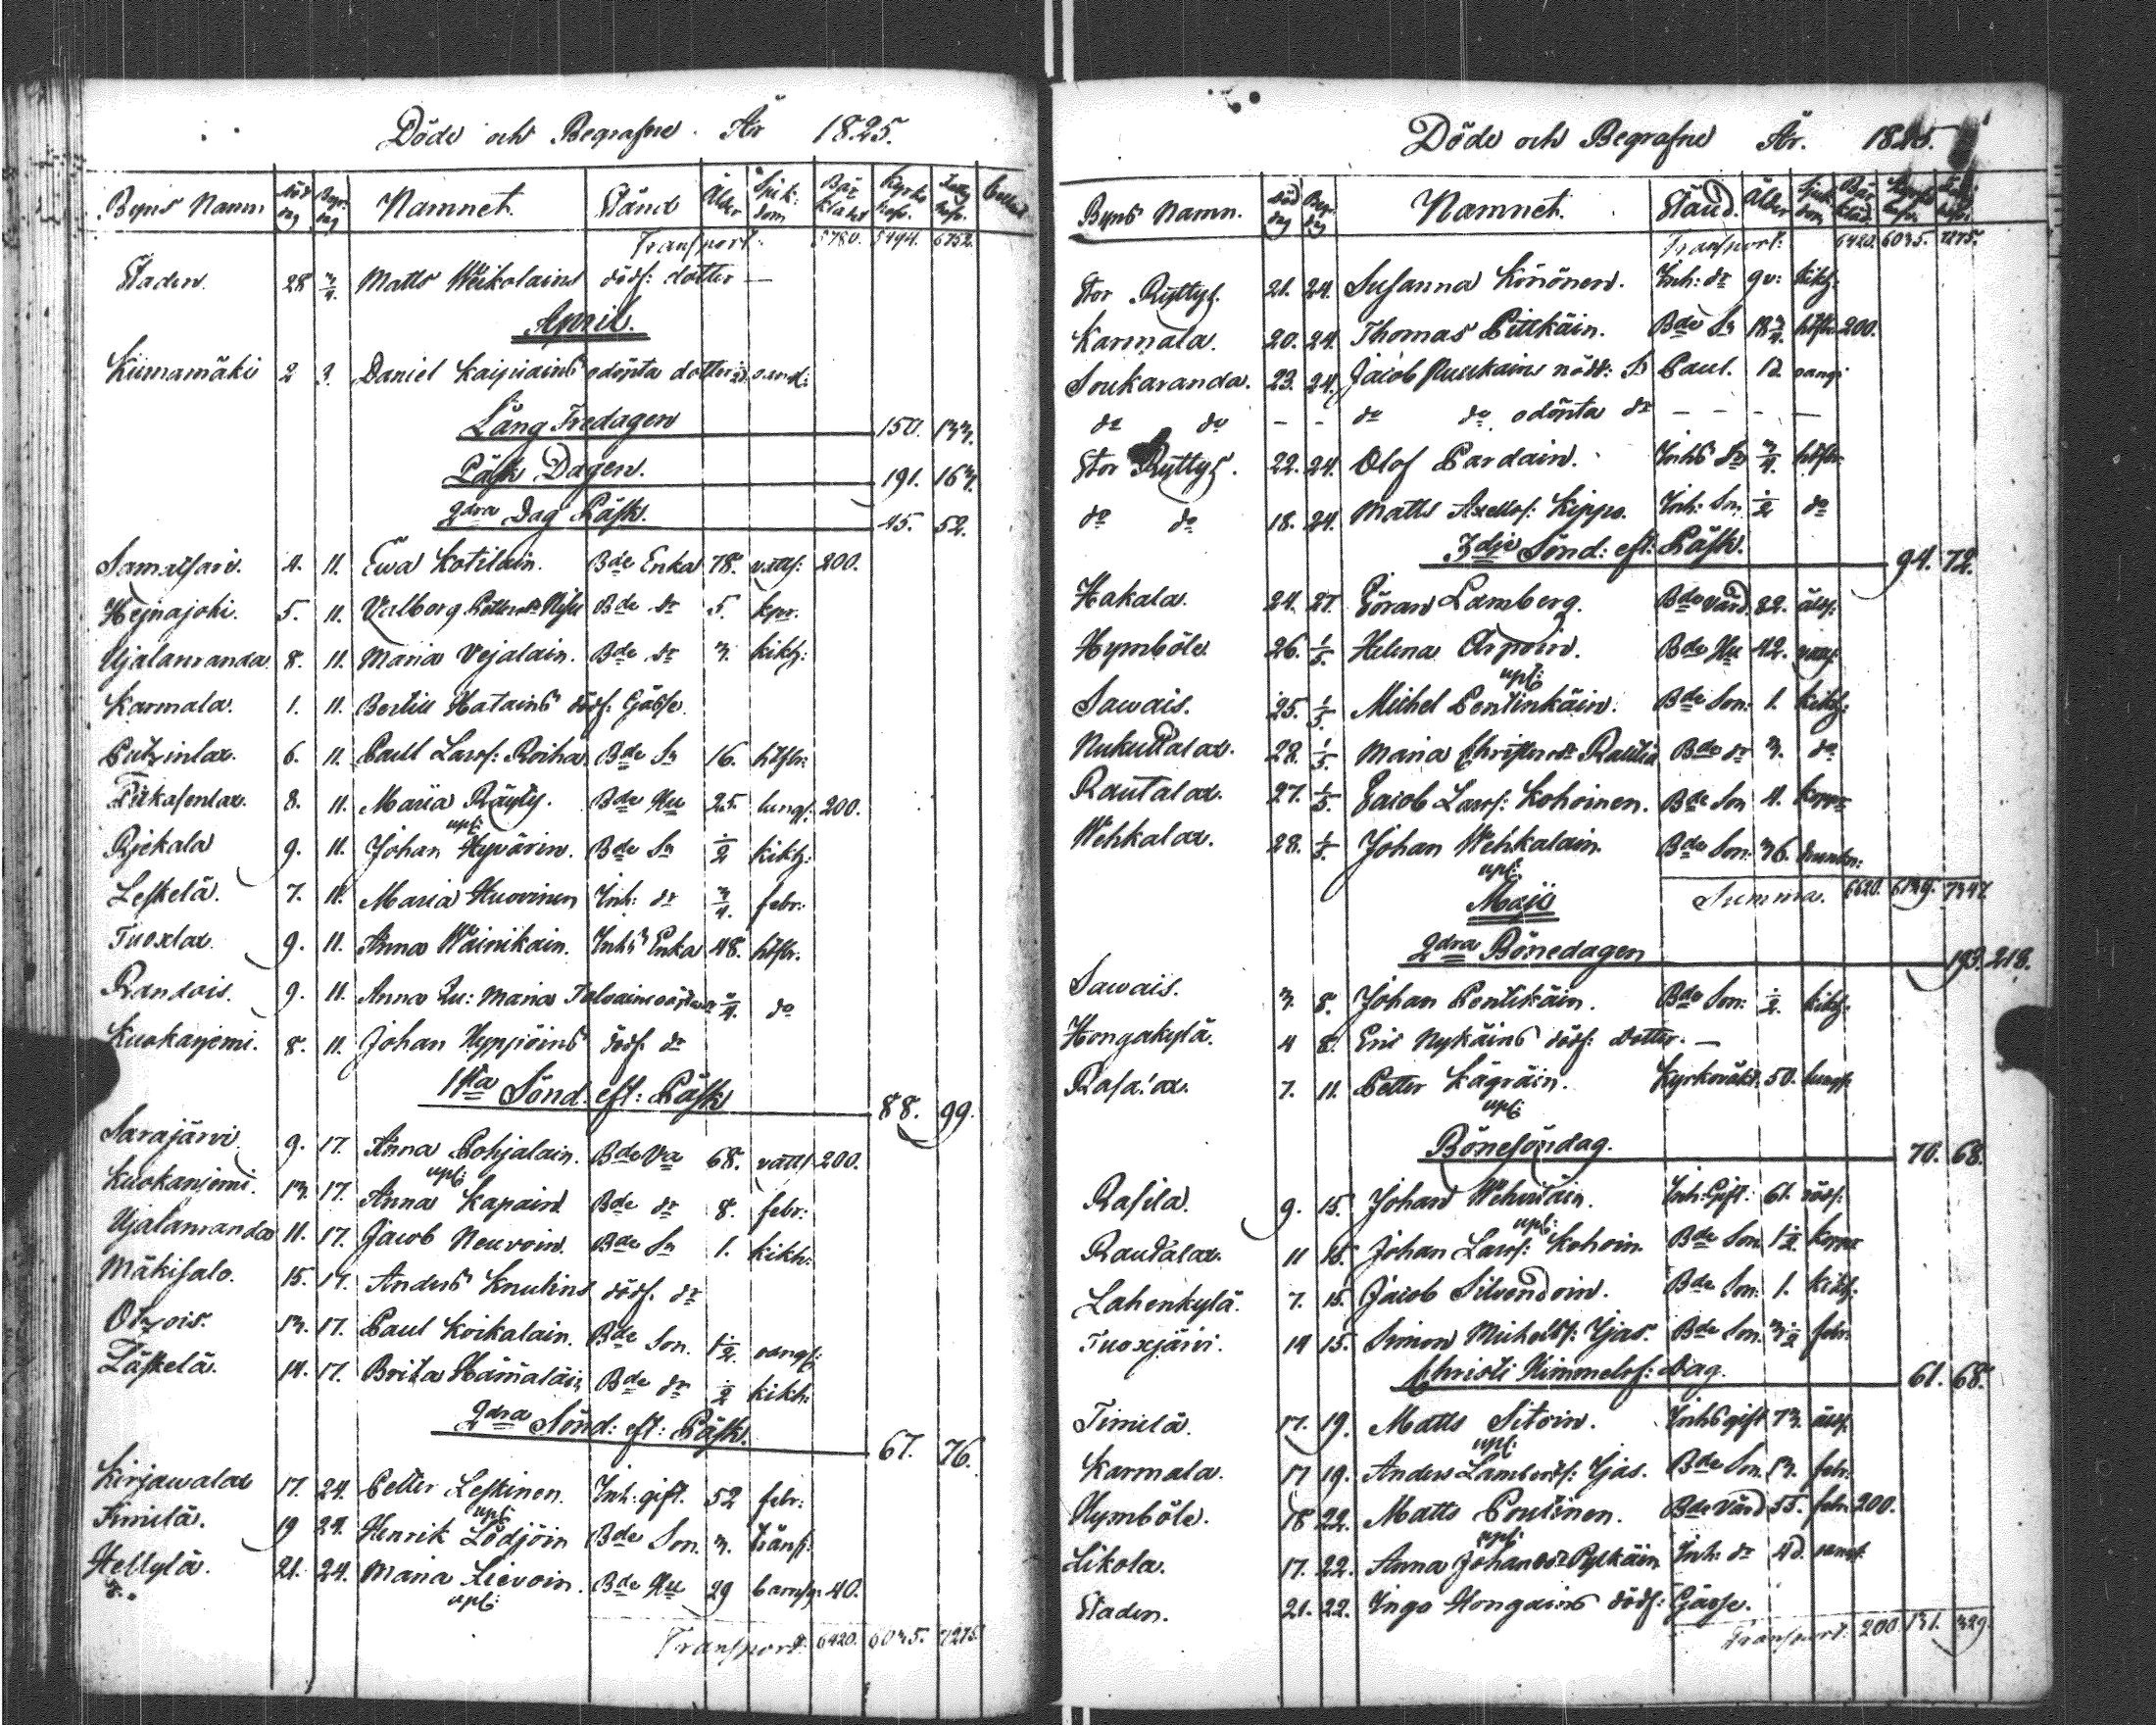 Döde och Begrafne År 1825.
Byns Namn Död dag Begr: dag Namnet. Stånd Ålder Sjuk: dom Bår kläde Kyrko
Transport: 5780. 5494. 6752.
Staden. 28 3/4. Matts Weikolains dödf: dotter —
April.
Kiimamäki 2 3. Daniel Kaipiains odöpta dotter
Lång Fredagen 150. 133.
Påsk Dagen. 191. 163.
2dra Dag Påsk. 45. 52.
4. 11. Ewa Kotilain. Bde Enka 78. 200.
Hejnajoki. 5. 11. Valborg Bde dr 5. kpr.
Ujalanranda 8. 11. Maria Vejalain. Bde dr 3. kikh:
Karmala. 1. 11. Bertill Hatains dödf. Gåsse.
6. 11. Paul Larsf: Roiha Bde Sn 16. hitsbr:
8. 11. Maria Räyty. Bde Hu 25. lungs: 200.
upf:
Riekala 9. 11. Johan Hyvärin. Bde Sn 1/2 kikh:
Leskelä. 7. 11. Maria Huovinen Inh: dr 3/4. febr:
Tuoxlax. 9. 11. Anna Wäinikain. Inhs Enka 48. hitsbr.
Randois. 9. 11. Anna Lu: Maria do
Kuokaniemi. 8. 11. Johan Hyppöins dödf. dr
1sta Sönd. eft: Påsk 88. 99.
Sarajärvi. 9. 17. Anna Pohjalain. Bde Va 68. vatts 200.
upf:
Kuokaniemi. 13. 17. Anna Kapain Bde dr 8. febr:
Ujalanranda 11. 17. Jacob Neuvoin. Bde Sn 1. kikh:
Mäkisalo. 15. 17. Anders Knutins dödf. dr
Otzois. 13. 17. Paul Koikalain. Bde Son. 1 1/2.
Läskelä. 14. 17. Brita Hämäläin Bde dr 1/2 kikh:
2dra Sönd: eft: Påsk. 67. 76.
Kirjawalax 17. 24. Petter Leskinen. Inh: gift. 52 febr:
upf:
Tinilä. 19 24. Henrik Lödjöin Bde Son. 3. träns:
Hellylä. 21. 24. Maria Lievoin. Bde Hu 29 barnsg: 40.
upf:
Transport: 6420. 6035. 7275.
Döde och Begrafne År. 1825.
Byns Namn. Död dag Begr. dag Namnet. Stånd. Ålder Sjuk dom Bår kläd.
Transport: 6420. 6035. 7275.
Stor Ryttys. 21. 24. Susanna Könönen. Inh: dr 9v: kikh:
Karmala. 20. 24. Thomas Pittkäin. Bde Sn 18 3/4 hitsbr 200.
Soukaranda. 23. 24. Jacob nödd: S Paul. 1d.
do do — — do do. odöpta dr — — — —
Stor Ryttys. 22. 24. Olof Pardain. Inhs dr 3/4. hitsbr:
do do 18. 24. Matts Axellsf: Kippo. Inh: Sn. 1/2 do
3dje Sönd: eft: Påsk. 94. 72.
Hakala. 24. 27. Göran Lamberg. Bde värd 82. åld:
Hymböle 26. 1/5. Helena Arpoin. Bde Hu 42.
upf:
Sawais. 25. 1/5. Michel Pentinkäin. Bde Son: 1. kikh:
Nukuttalax. 28. 1/5. Maria Christersdr Rautia Bde dr 3. do
Rautalax. 27. 1/5. Jacob Larsf: Kohoinen. Bde Son 4. kopr
Wehkalax. 28. 1/5. Johan Wehkalain Bde Son: 36.
upf:
Summa. 6620. 6129. 7347
Maji
2dra Bönedagen 193. 218.
Sawais. 3. 8. Johan Pentikäin. Bde Son: 1/2. kikh:
Hongakylä. 4 8. Eric Nykäins dödf: dotter. —
7. 11. Petter Kägräin. Kyrkovakt. 50. lungs:
upf:
Bönesöndag. 70. 68.
Rasila. 9. 15. Johan Wehviläin. Inh: Gift. 61.
upf:
Rautalax. 11 15. Johan Larsf: Kohoin. Bde Son. 1 1/2 kopr
Lahenkylä. 7. 15. Jacob Silvendoin. Bde Son: 1. kikh:
Tuoxjärvi. 14 15. Simon Michelsf: Ijas. Bde Son. 3 1/2 febr.
Christi Himmelsf: dag. 61. 68.
Tinilä. 17. 19. Matts Sitoin. Inhs gift 73. åld.
upf:
Karmala. 17 19. Anders Lambertsf: Ijas. Bde Son. 13. febr:
Hymböle. 18 22. Matts Poutinen. Bde värd 55. febr. 200.
upf:
Likola. 17. 22. Anna Johansdr Pylkäin Inh: dr 4d.
Staden. 21. 22. Inga Hongains dödf: Gåsse.
Transport: 200 131. 329.